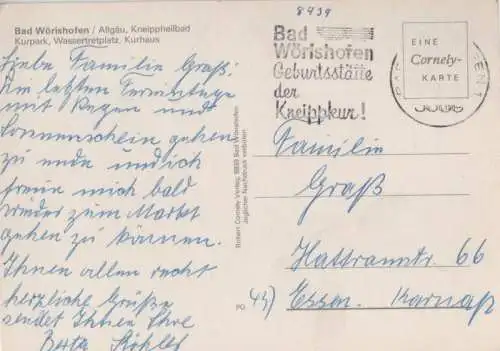 8439
Bad Wörishofen / Allgäu, Kneippheilbad
Kurpark, Wassertretplatz, Kurhaus
Liebe Familie Graß!
Die letzten
mit Regen und
Sonnenschein gehen
zu ende und ich
freue mich bald
wieder zum Markt
gehen zu können.
Ihnen allen recht
herzliche Grüße
sendet Ihnen Ihre
Berta Köhler
Robert Cornely-Verlag, 8939 Bad Wörishofen
Jeglicher Nachdruck verboten
PO
Bad
Wörishofen
Geburtsstätte
der
Kneippkur!
EINE
Cornely-
KARTE
Familie
Graß
66
43) Essen. Karnap